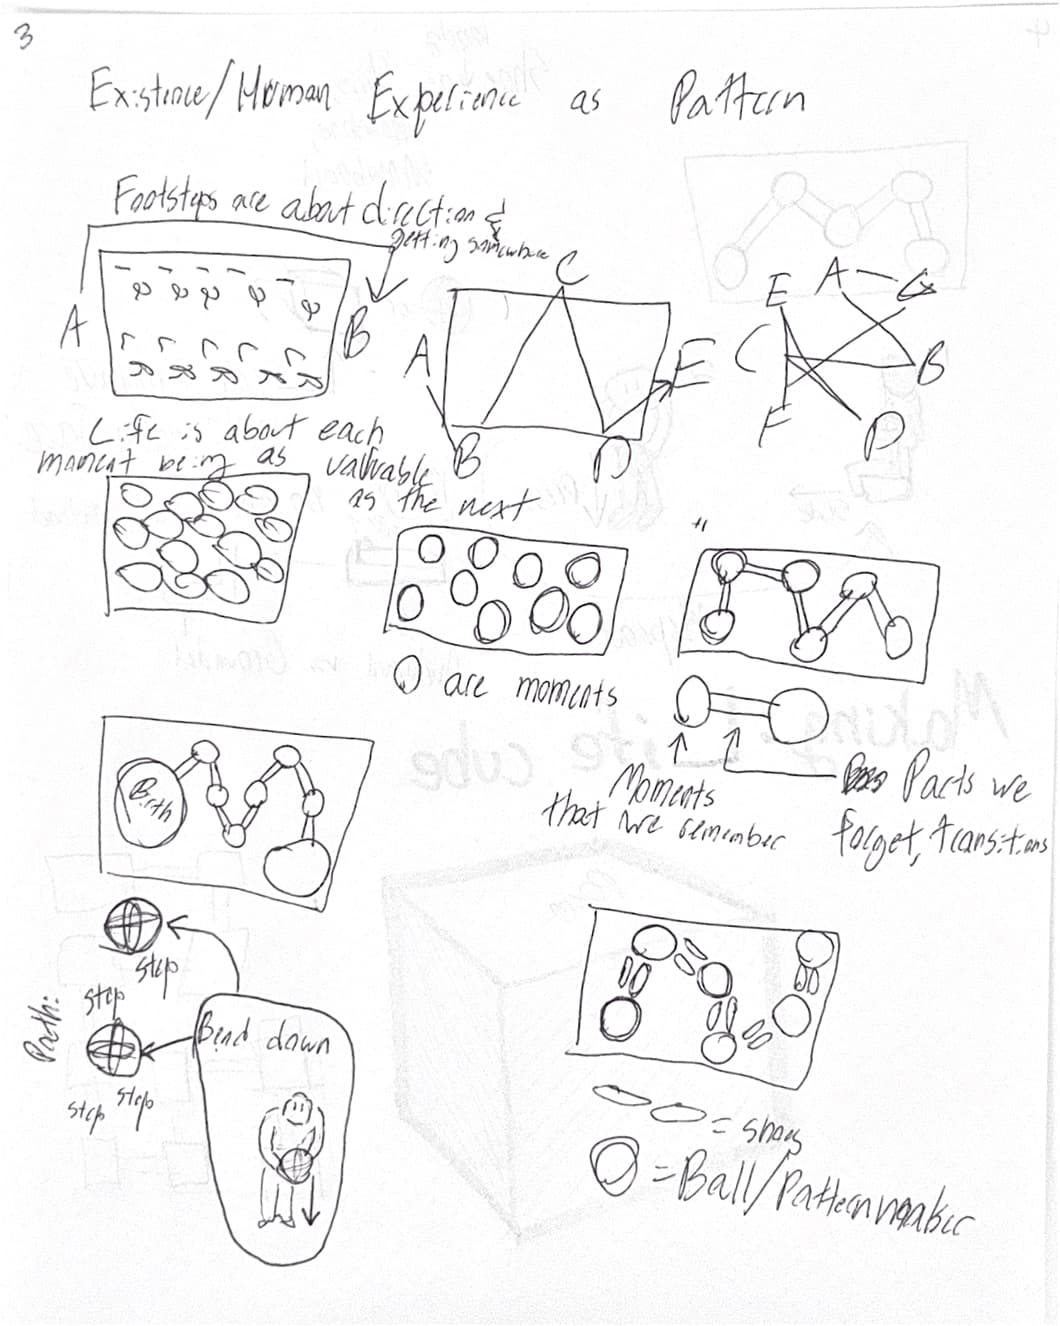 3
Existence/Human Experience as Pattern
Footsteps are about direction &
getting somewhere
A
B
A
B
C
D
E
E
A
G
C
B
F
D
Life is about each
moment being as valuable
as the next
"
are moments
Moments
that we remember
Parts we
forget, transitions
Birth
Path:
step
step
step
step
Bend down
= shoes
= Ball/Pattern maker
Making Life cube